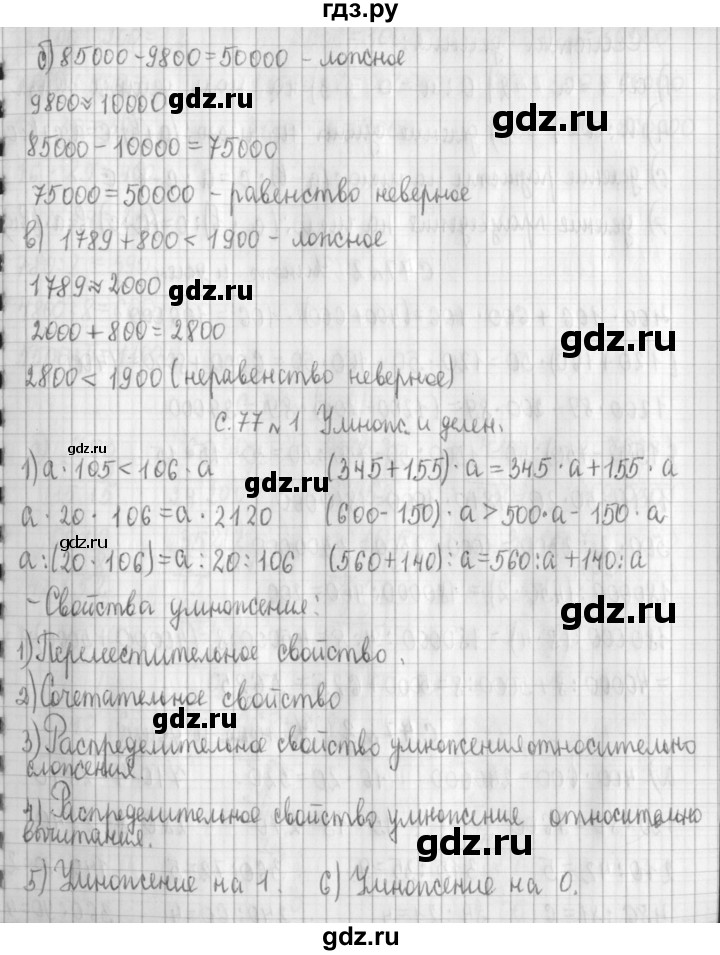 гдз.ру
б) 85000 - 9800 = 50000 - ложное
9800 ≈ 10000 gdz.ru
gdz.ru
85000 - 10000 = 75000
75000 = 50000 - равенство неверное
в) 1789 + 800 < 1900 - ложное
1789 ≈ 2000 gdz.ru
2000 + 800 = 2800 gdz.ru
2800 < 1900 (неравенство неверное)
с. 77 № 1 Умнож. и делен.
gdz.ru
1) a · 105 < 106 · a (345 + 155) · a = 345 · a + 155 · a
gdz.ru
a · 20 · 106 = a · 2120 (600 - 150) · a > 500 · a - 150 · a
gdz.ru
a : (20 · 106) = a : 20 : 106 (560 + 140) : a = 560 : a + 140 : a
- Свойства умножения: gdz.ru
1) Переместительное свойство.
2) Сочетательное свойство
gdz.ru
3) Распределительное свойство умножения относительно
сложения.
4) Распределительное свойство умножения относительно
вычитания. gdz.ru
5) Умножение на 1. 6) Умножение на 0.
gdz.ru